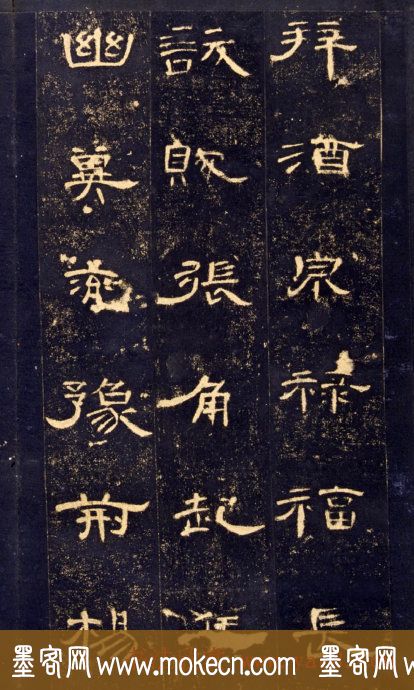 拜酒泉禄福長
訞賊張角起
幽冀兗豫荊楊
墨客网 www.mokecn.com 墨客网